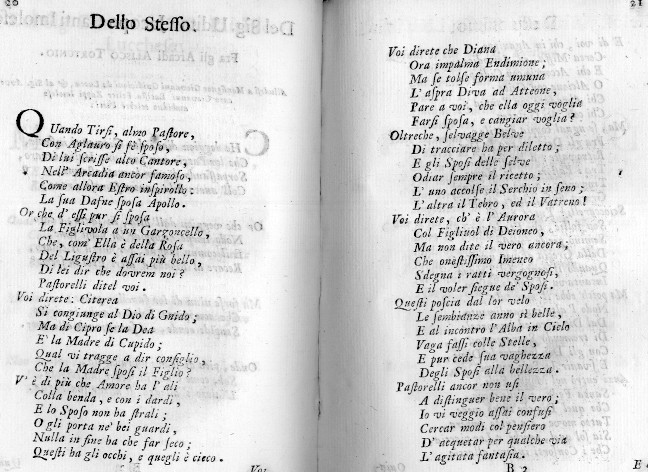 20
Dello Stesso.
QUando Tirsi, almo Pastore,
Con Aglauro si fè sposo,
Di lui scrisse alto Cantore,
Nell' Arcadia ancor famoso,
Come allora Estro inspirollo:
La sua Dafne sposa Apollo.
Or che d' essi pur si sposa
La Figlivola a un Garzoncello,
Che, com' Ella è della Rosa
Del Ligustro è assai più bello,
Di lei dir che dovrem noi?
Pastorelli ditel voi.
Voi direte: Citerea
Si congiunge al Dio di Gnido;
Ma di Cipro se la Dea
E' la Madre di Cupido;
Qual vi tragge a dir consiglio,
Che la Madre sposi il Figlio?
V' è di più che Amore ha l' ali
Colla benda, e con i dardi,
E lo Sposo non ha strali;
O gli porta ne' bei guardi,
Nulla in fine ha che far seco;
Questi ha gli occhi, e quegli è cieco.
Voi
21
Voi direte che Diana
Ora impalma Endimione;
Ma se tolse forma umana
L' aspra Diva ad Atteone,
Pare a voi, che ella oggi voglia
Farsi sposa, e cangiar voglia?
Oltreche, selvagge Belve
Di tracciare ha per diletto;
E gli Sposi delle selve
Odiar sempre il ricetto;
L' uno accolse il Serchio in seno;
L' altra il Tebro, ed il Vatreno!
Voi direte, ch' è l' Aurora
Col Figliuol di Deioneo,
Ma non dite il vero ancora;
Che onestissimo Imeneo
Sdegna i ratti vergognosi,
E il voler siegue de' Sposi.
Questi poscia dal lor velo
Le sembianze anno sì belle,
E al incontro l' Alba in Cielo
Vaga fassi colle Stelle,
E pur cede sua vaghezza
Degli Sposi alla bellezza.
Pastorelli ancor non usi
A distinguer bene il vero;
Io vi veggio assai confusi
Cercar modi col pensiero
D' acquetar per qualche via
L' agitata fantasia.
B 2